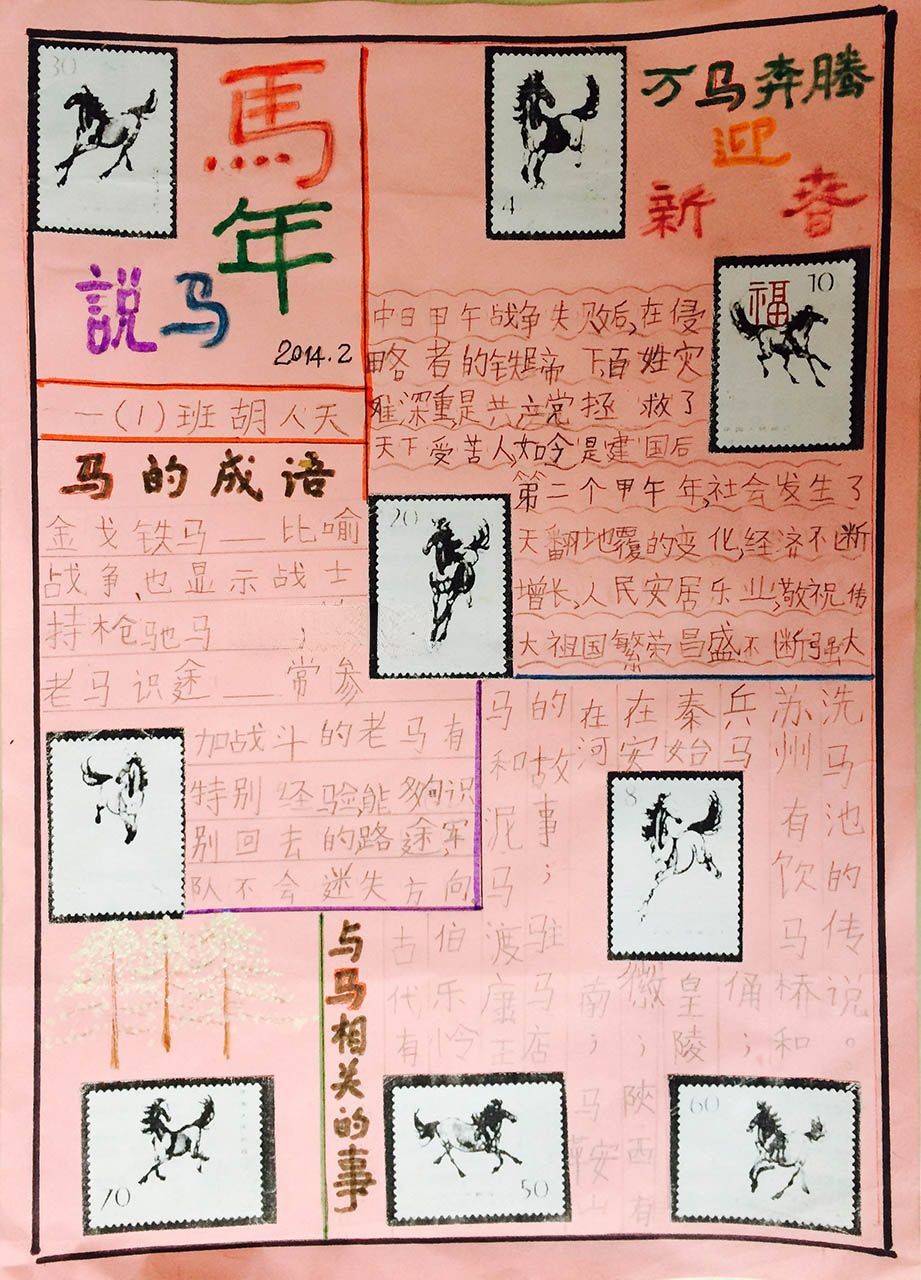 30
馬
年
説马
2014.2
一(1)班胡人天
4
万马奔腾
迎
新春
福 10
中日甲午战争失败后,在侵
略者的铁蹄下百姓灾
难深重,是共产党拯救了
天下受苦人,如今是建国后
第二个甲午年,社会发生了
天翻地覆的变化,经济不断
增长,人民安居乐业,敬祝伟
大祖国繁荣昌盛不断强大
20
马的成语
金戈铁马——比喻
战争,也显示战士
持枪驰马;
老马识途——常参
加战斗的老马有
特别经验,能夠识
别回去的路途,军
队不会迷失方向
与马相关的事
古代有
伯乐怜
马和泥马渡康王
的故事；驻马店
在河南；马鞍山
在安徽；陝西有
秦始皇陵
兵马俑；
苏州有饮马桥和
洗马池的传说。
8
70
50
60